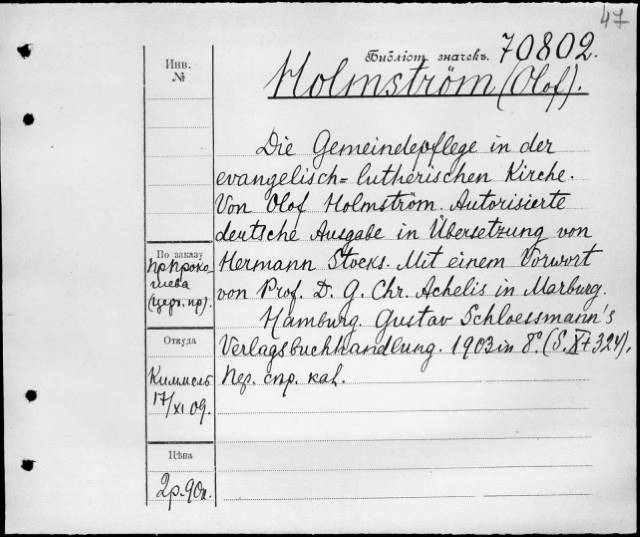 47
Библіот. значекъ. 70802.
Holmström (Olof).
Инв.
№
Die Gemeindepflege in der
evangelisch=lutherischen Kirche.
Von Olof Holmström. Autorisierte
deutsche Ausgabe in Übersetzung von
Hermann Stocks. Mit einem Vorwort
von Prof. D. G. Chr. Achelis in Marburg.
Hamburg. Gustav Schloessmann's
Verlagsbuchhandlung. 1903 in 8º. (S. XI+324).
Пер. спр. каі.
По заказу
пр Проко
шева
(церк. пр).
Откуда
Киммель
17/XI 09.
Цѣна
2р. 90к.